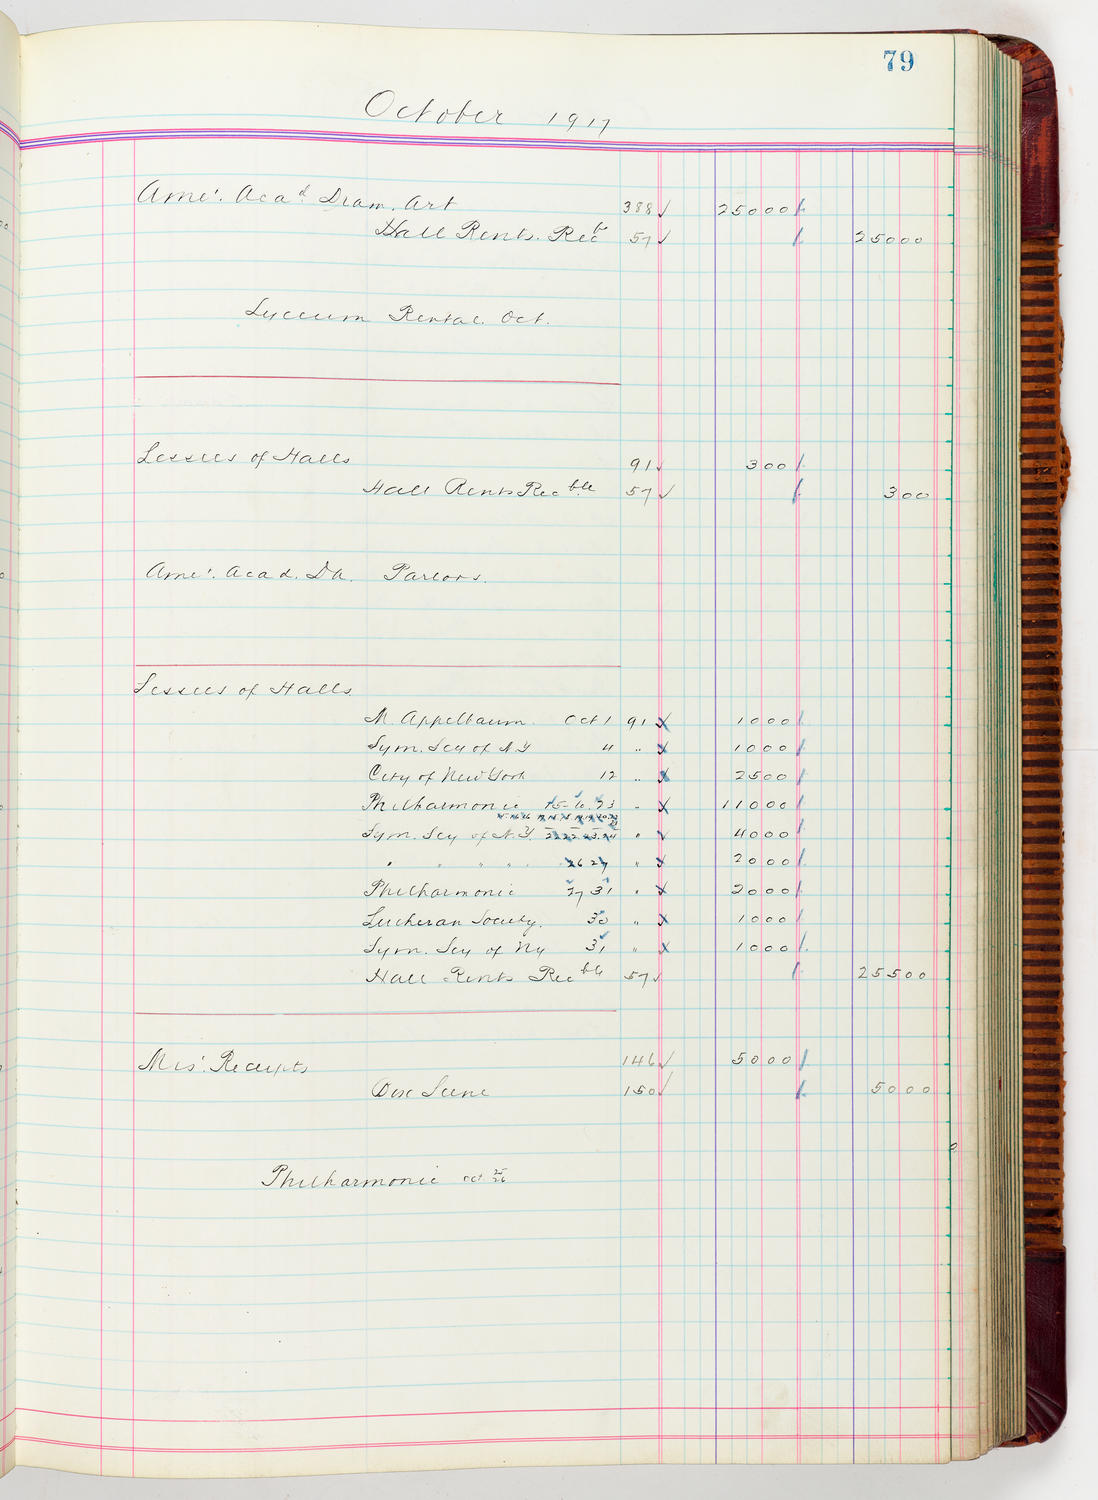 79
October 1917
Ame'. Acad. Dram. Art 388 25000
Hall Rents. Recble 57 25000
Lyceum Rental. Oct.
Lessees of Halls 91 300
Hall Rents Recble 57 300
Ame'. Acad. DA. Parlors.
Lessees of Halls
M. Appelbaum. Oct 1 91 1000
Sym. Scy of N.Y 4 " 1000
City of New York 12 " 2500
Philharmonic 11000
Sym. Scy of N.Y. " 4000
" " " " 26 27 " 2000
Philharmonic 27 31 " 2000
Lutheran Society. 30 " 1000
Sym. Scy of NY 31 " 1000
Hall Rents Recble 57 25500
Mis'. Receipts 146 5000
Box Scene 150 5000
Philharmonic oct 25 26